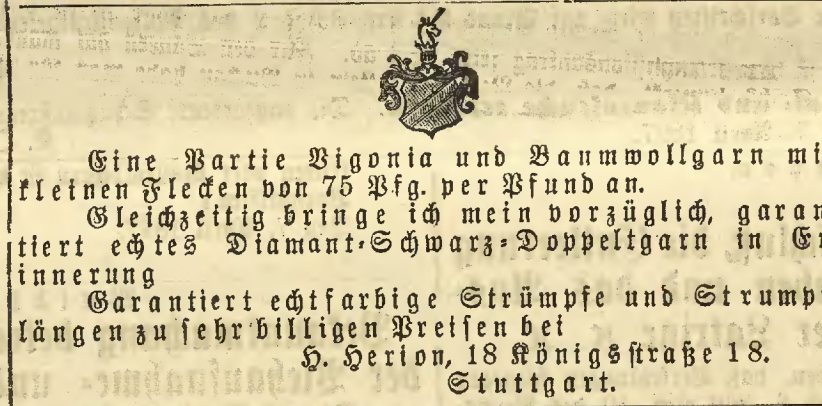 Eine Partie Vigonia und Baumwollgarn mi
kleinen Flecken von 75 Pfg. per Pfund an.
Gleichzeitig bringe ich mein vorzüglich, garan
tiert echtes Diamant-Schwarz-Doppeltgarn in Er
innerung
Garantiert echtfarbige Strümpfe und Strump
längen zu sehr billigen Preisen bei
H. Herion, 18 Königsstraße 18.
Stuttgart.